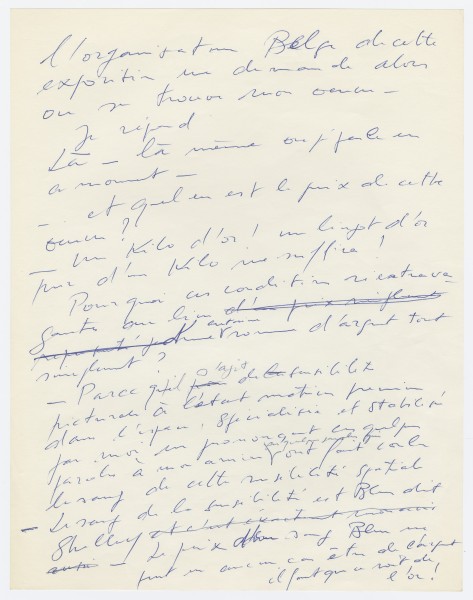 l'organisation Belge de cette
exposition me demande alors
où se trouve mon œuvre –
Je répond
Là – là même où je parle en
ce moment –
– et quel en est le prix de cette
œuvre ?
– Un Kilo d'or ! un lingot d'or
pur d'un Kilo me suffira !
Pourquoi ces conditions extrava-
gantes au lieu
somme d'argent tout
simplement ?
– Parce qu'il s'agit de la sensibilité
picturale à l'état matière première
dans l'espace, spécialisée et stabilisée
par moi en prononçant ces quelques
paroles à mon arrivée qui ont fait couler
le sang de cette sensibilité spatiale
– Le sang de la sensibilité est Bleu dit
Shelley et c'est exactement mon avis
aussi – Le prix du sang Bleu ne
peut en aucun cas être de l'argent
il faut que ce soit de
l'or !